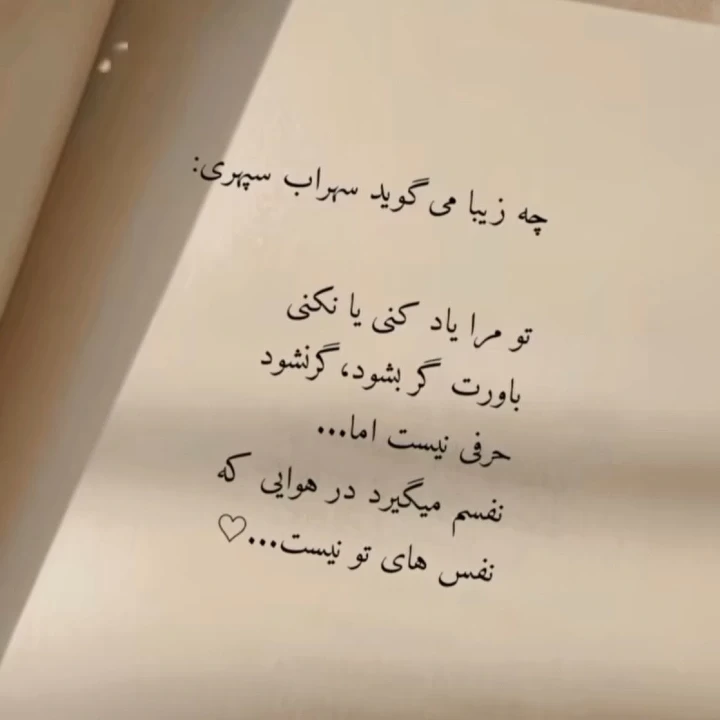 چه زیبا می‌گوید سهراب سپهری:
تو مرا یاد کنی یا نکنی
باورت گر بشود، گرنشود
حرفی نیست اما...
نفسم میگیرد در هوایی که
نفس های تو نیست...♡